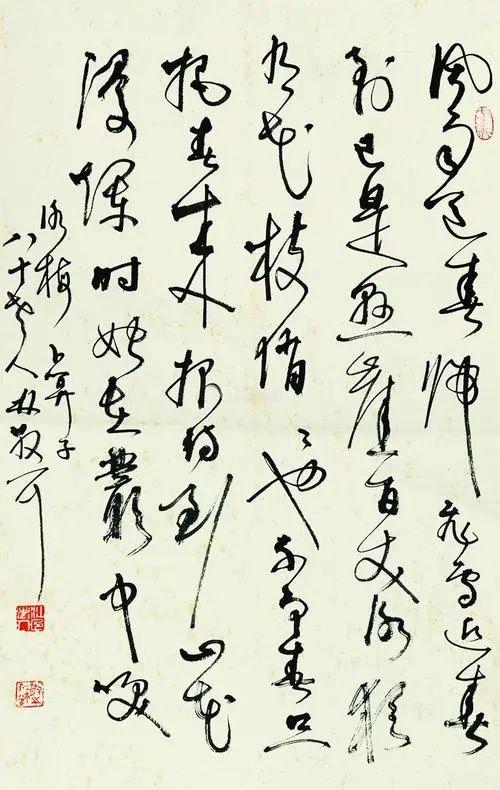 风雨送春归飞雪迎春
到已是悬崖百丈冰犹
有花枝俏〻也不争春只
把春来报待到山花
漫烂时她在丛中咲
咏梅 卜算子
八十老人林散耳